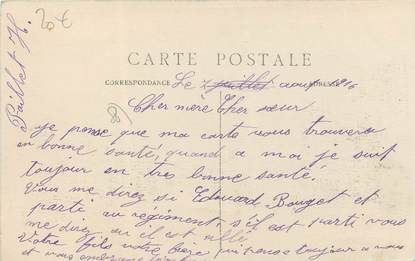 20€
Paillet H.
CARTE POSTALE
CORRESPONDANCE
ADRESSE
Le 7 juillet aout 1916
Cher mère Cher sœur
je pense que ma carte vous trouvera
en bonne santé, quand a moi je suit
toujour en très bonne santé.
Vous me direz si Edouard Bouget et
parti au regiment, s'il est parti vous
me direz ou il est allé
Votre fils votre frère qui pense toujour a vous
et vous embrasse